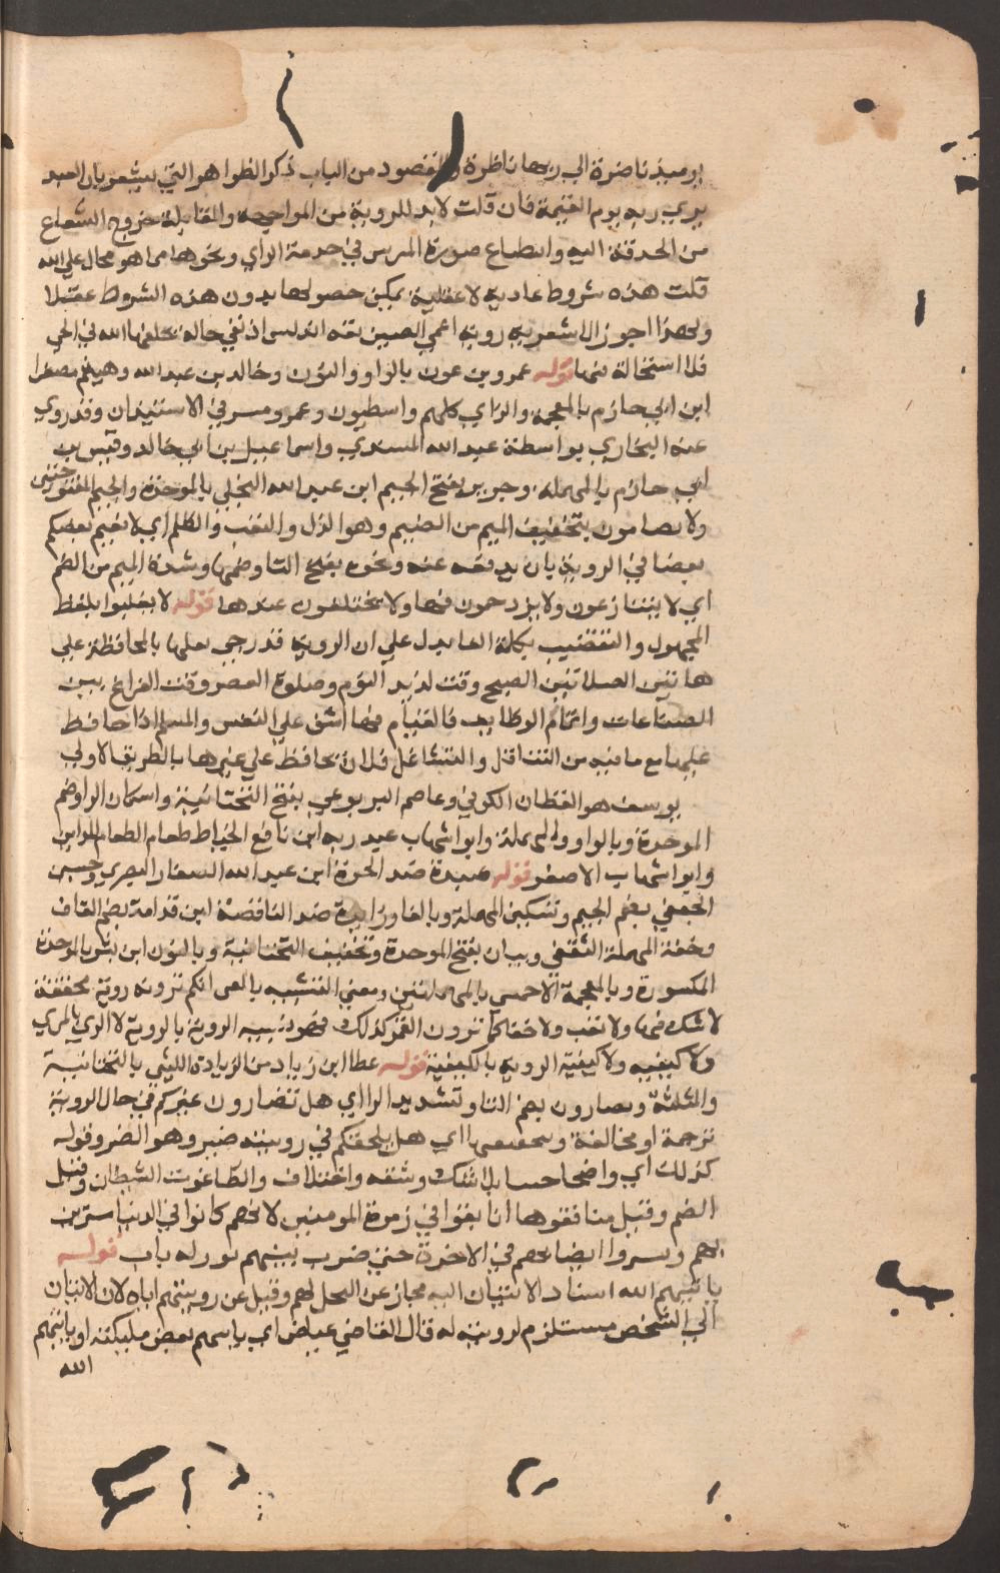 يوميذ ناضرة الي ربها ناظرة والمقصود من الباب ذكر الظواهر التي يشعر بان العبد
يري ربه يوم القيمة فان قلت لابد للروية من المواجهه والمقابلة وخروج الشعاع
من الحدقة اليه وانطباع صورة المري في حدقة الراي ونحوها مما هو محال علي الله
قلت هذه شروط عادية لاعقلية يمكن حصولها بدون هذه الشروط عقلا
ولهذا جوز الاشعرية روية اعمي الصين بقه اندلس اذ هي حالة يخلقها الله في الحي
فلا استحالة فيها قوله عمرو بن عون بالواو والنون وخالد بن عبد الله وهشيم مصغرا
ابن ابي حازم بالمعجمة والزاي كلهم واسطيون وعمرو مر في الاستيذان وقد روي
عنه البخاري بواسطة عبد الله المسندي واسماعيل بن ابي خالد وقيس بن
ابي حازم بالمهملة وجرير بفتح الجيم ابن عبد الله البجلي بالموحدة والجيم المفتوحتين
ولا تضامون بتخفيف الميم من الضيم وهو الذل والتعب والظلم اي لا يضيم بعضكم
بعضا في الروية بان يدفعه عنه ونحوه بفتح التا وضمها وشدة الميم من الضم
اي لا يتنازعون ولا يزدحمون فيها ولا يختلفون عندها قوله لا يغلبوا بلفظ
المجهول والتعقيب بكلمة الفا يدل علي ان الروية قد رجي نيلها بالمحافظة علي
هاتين الصلاتين الصبح وقت لذيذ النوم وصلوة العصر وقت الفراغ من
الصناعات واتمام الوظايف فالقيام فيها اشق علي النفس والمسلم اذا حافظ
عليها مع ما فيه من التثاقل والتشاغل فلان يحافظ علي غيرها بالطريق الاولي
يوسف هو القطان الكوفي وعاصم اليربوعي بفتح التحتانية واسكان الراوضم
الموحدة وبالواو والمهملة وابو شهاب عبد ربه ابن نافع الحناط طعام الطعام المداين
وابو شهاب الاصغر قوله عبدة ضد الحرة ابن عبد الله الصفار البصري وحسين
الجعفي بضم الجيم وتسكين المهملة وبالفا وزايدة ضد الناقصة ابن قدامة بضم القاف
وخفة المهملة الثقفي وبيان بفتح الموحدة وتخفيف التحتانية وبالنون ابن بشر بالموحدة
المكسورة وبالمعجمة الاحمسي بالمهملتين ومعني التشبيه بالقمر انكم ترونه روية محققة
لا شك فيها ولا تعب ولا خفا كما ترون القمر كذلك فهو تشبيه الروية بالروية لا المري بالمري
ولا كيفيه ولا كيفية الرويه بالكيفية قوله عطا ابن زياد من الزيادة الليثي بالتحتانية
والمثلثة وتضارون بضم التا وتشديد الرا اي هل تضارون غيركم في حال الروية
بزحمة او مخالفة وبتخفيفها اي هل يلحقكم في رويته ضير وهو الضر وقوله
كذلك اي واضحا حسا بلا شك ومشقه واختلاف والطاغوت الشيطان وقيل
الصنم وقيل منافقوها انما بقوا في زمرة المومنين لانهم كانوا في الدنيا مسترين
بهم وتستروا ايضا بهم في الاخرة حتي ضرب بينهم بسور له باب قوله
ياتيهم الله اسناد الاتيان اليه مجاز عن التجلي لهم وقيل عن رويتهم اياه لان الاتيان
الي الشخص مستلزم لرويته له قال القاضي عياض اي ياتيهم بعض مليكته او ياتيهم
الله